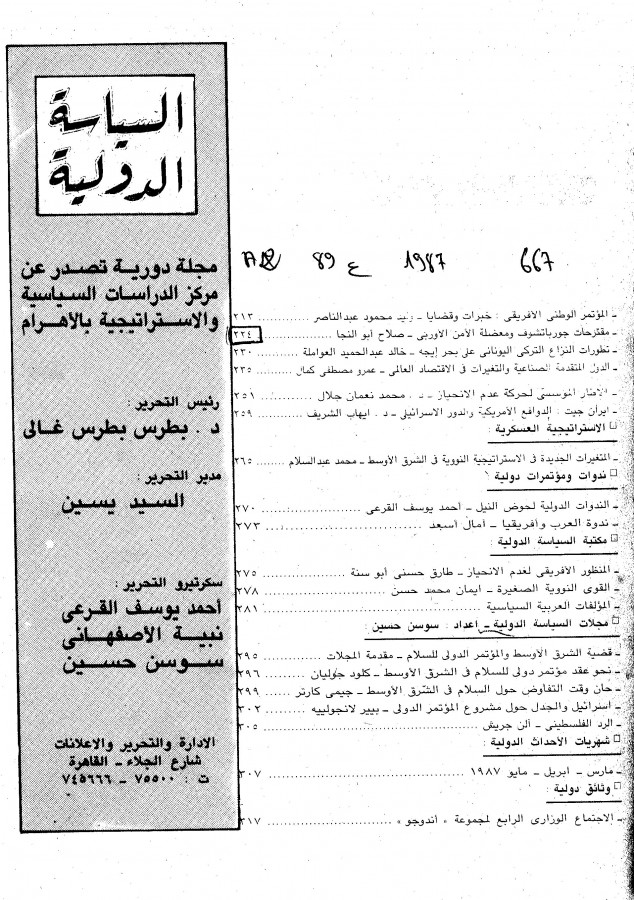 السياسة
الدولية
مجلة دورية تصدر عن
مركز الدراسات السياسية
والاستراتيجية بالأهرام
رئيس التحرير :
د . بطرس بطرس غالى
مدير التحرير :
السيد يسين
سكرتيرو التحرير :
أحمد يوسف القرعى
نبية الأصفهانى
سوسن حسين
الادارة والتحرير والاعلانات
شارع الجلاء ـ القاهرة
ت : ٧٥٥٠٠ ـ ٧٤٥٦٦٦
89 ع 1987 667
ـ المؤتمر الوطنى الأفريقى : خبرات وقضايا ـ وليد محمود عبدالناصر ٢١٣
ـ مقترحات جورباتشوف ومعضلة الأمن الأوربى ـ صلاح أبو النجا ٢٢٤
ـ تطورات النزاع التركى اليونانى على بحر إيجه ـ خالد عبدالحميد العواملة ٢٣٠
ـ الدول المتقدمة الصناعية والتغيرات فى الاقتصاد العالمى ـ عمرو مصطفى كمال ٢٣٥
ـ الاطار المؤسسى لحركة عدم الانحياز ـ د . محمد نعمان جلال ٢٥١
ـ ايران جيت : الدوافع الأمريكية والدور الاسرائيلى ـ د . ايهاب الشريف ٢٥٩
□ الاستراتيجية العسكرية :
ـ المتغيرات الجديدة فى الاستراتيجية النووية فى الشرق الأوسط ـ محمد عبدالسلام ٢٦٥
□ ندوات ومؤتمرات دولية :
ـ الندوات الدولية لحوض النيل ـ أحمد يوسف القرعى ٢٧٠
ـ ندوة العرب وأفريقيا ـ أمال أسعد ٢٧٣
□ مكتبة السياسة الدولية :
ـ المنظور الأفريقى لعدم الانحياز ـ طارق حسنى أبو سنة ٢٧٥
ـ القوى النووية الصغيرة ـ ايمان محمد حسن ٢٧٨
ـ المؤلفات العربية السياسية ٢٨١
□ مجلات السياسة الدولية ـ اعداد : سوسن حسين :
ـ قضية الشرق الأوسط والمؤتمر الدولى للسلام ـ مقدمة المجلات ٢٩٥
ـ نحو عقد مؤتمر دولى للسلام فى الشرق الأوسط ـ كلود جوليان ٢٩٦
ـ حان وقت التفاوض حول السلام فى الشرق الأوسط ـ جيمى كارتر ٢٩٩
ـ اسرائيل والجدل حول مشروع المؤتمر الدولى ـ بيير لانجولييه ٣٠٢
ـ الرد الفلسطينى ـ ألن جريش ٣٠٥
□ شهريات الأحداث الدولية :
ـ مارس ـ ابريل ـ مايو ١٩٨٧ ٣٠٧
□ وثائق دولية :
ـ الاجتماع الوزارى الرابع لمجموعة « أندوجو » ٣١٧